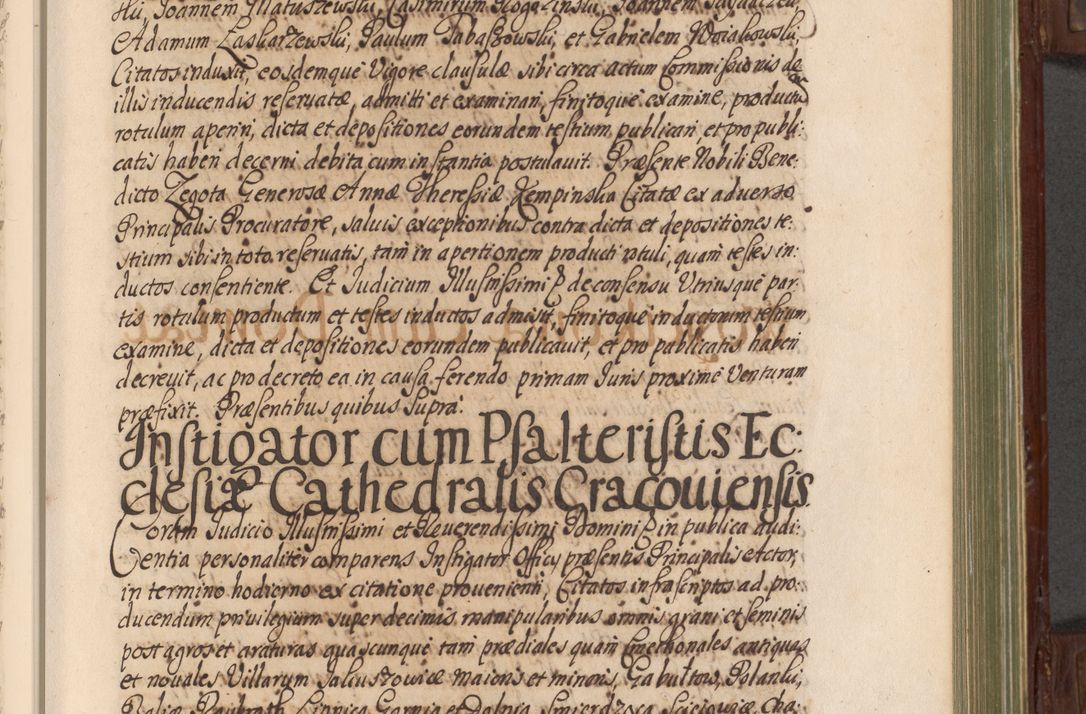 Adamum Zaskarzewski, Paulum Tabaszowski, et Gabrielem Woiakowski,
Citatos induxit, eosdemque Vigore clausulæ sibi circa actum Commissionis de
illis inducendis reseruatæ, admitti et examinari, finitoque examine, productū
rotulum aperiri, dicta et depositiones eorundem testium publicari, et pro publi:
catis haberi decerni debita cum instantia postulauit. Præsente Nobili Bene:
dicto Zegota Generosæ Annæ Theressiæ Kempinska Citatæ ex aduerso
Principalis Procuratore, saluis exceptionibus contra dicta et depositiones te:
stium sibi in toto reseruatis, tam in apertionem producti rotuli, quam testes in:
ductos consentiente. Et Judicium Illustrissimi D de consensu Utriusque par:
tis rotulum productum et testes inductos admisit, finitoque inductorum testium
examine, dicta et depositiones eorundem publicauit, et pro publicatis haberi
decreuit, ac pro decreto ea in causa ferendo primam Juris proxime Venturam
præfixit. Præsentibus quibus supra.
Instigator cum Psalteristis Ec:
clesiæ Cathedralis Cracouiensis
Coram Judicio Illustrissimi et Reuerendissimi Domini D in publica audi:
entia personaliter comparens Instigator Officij præsentis Principalis Actor,
in termino hodierno ex citatione prouenienti, Citatos infrascriptos ad pro:
ducendum priuilegium super decimis manipularibus omnis grani et seminis
post agros et araturas quascunque tam prædiales quam Cmethonales antiquas
et nouales Villarum Galiuszowice maioris et minoris, Gabultow, Polanki,